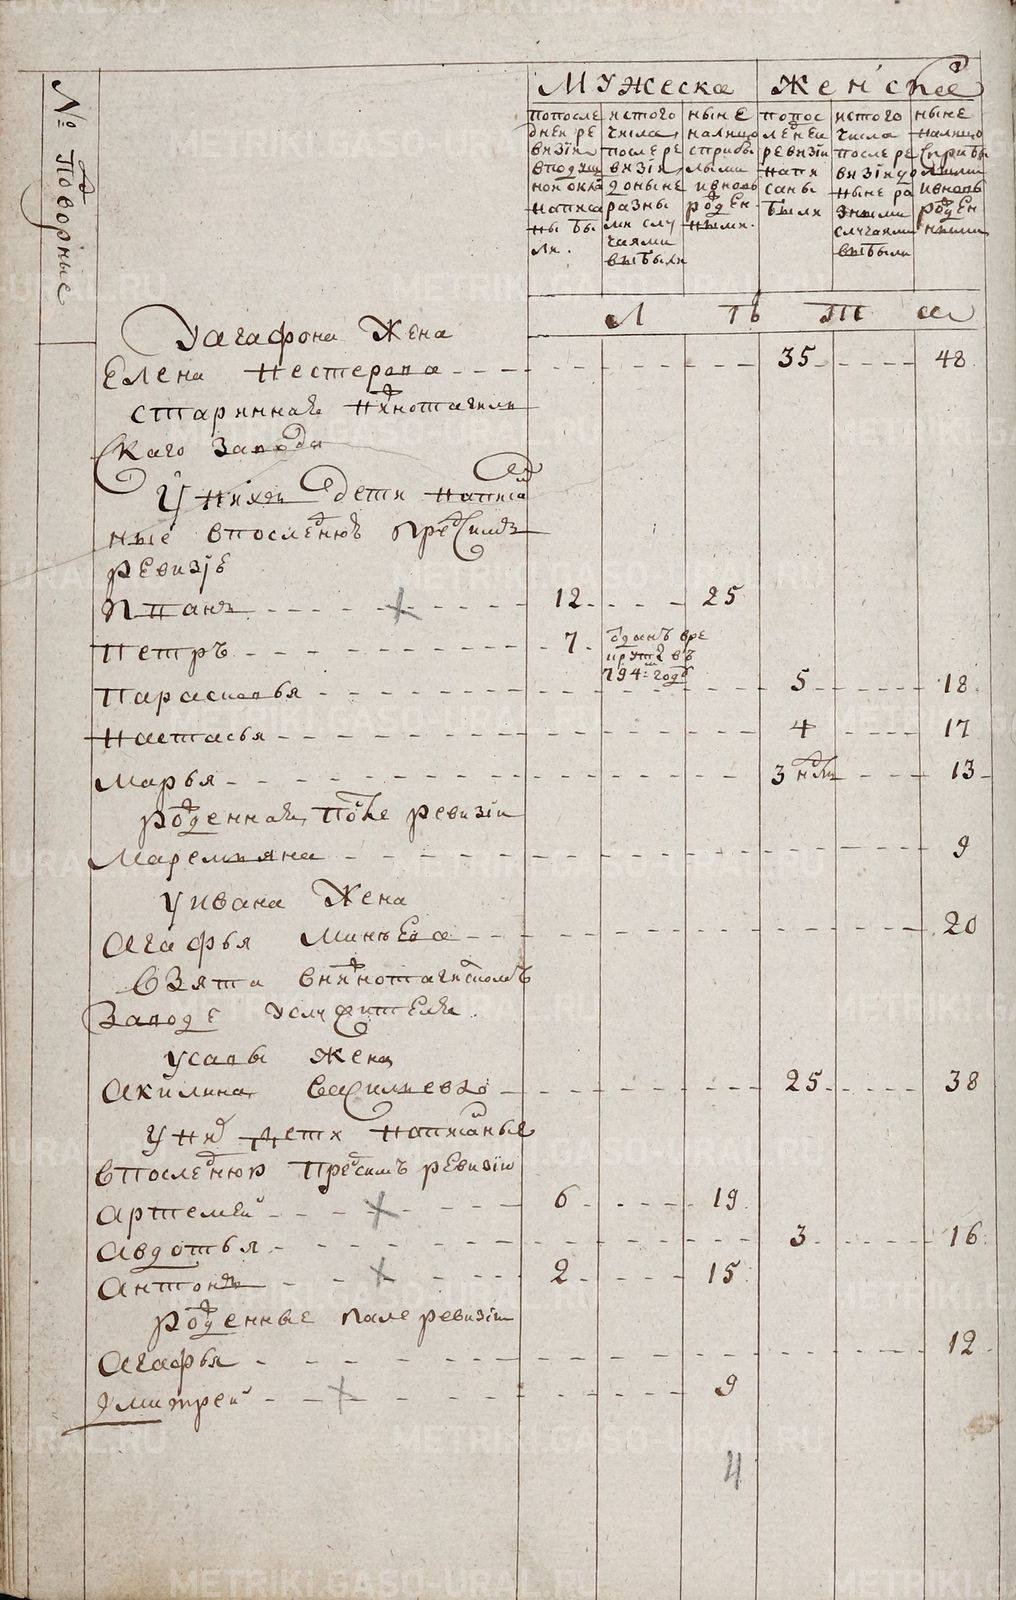 № подворные
Мужеска
Женска
попосле
дней ре
визіи
вподуш
ной окла
написа
ны бы
ли.
истого
числа
послере
визіи
доныне
разны
ми слу
чаями
выбыли
ныне
налицо
сприбы
лыми
ивновь
рожден
ными.
попос
ледней
ревизіи
напи
саны
были
истого
числа
послере
визіи до
ныне ра
зными
случаями
выбыли
ныне
налицо
сприбы
лыми
ивновь
рожден
ными
Л ѣ т а
Уагафона Жена
Елена Нестерова 35 48
стариннаго Нижнотагиль
Скаго Завода
У нихъ дети написа
ные впоследнюю пред Симъ
ревизіе
Иванъ 12 25
Петръ 7 отданъ вре
круты въ
794м годе
Парасковья 5 18
Настасья 4 17
Марья 3 нед. 13
рожденная после ревизіи
Маремьяна 9
Уивана Жена
Агафья Минѣева 20
Взята внижнотагильскомъ
Заводе Услужителя
Усавы Жена
Акилина Васильева 25 38
У них дети написаные
впоследнюю предсимъ ревизію
Артемей 6 19
Авдотья 3 16
Антонъ 2 15
рожденные после ревизіи
Агафья 12
Дмитрей 9
4
METRIKI.GASO-URAL.RU